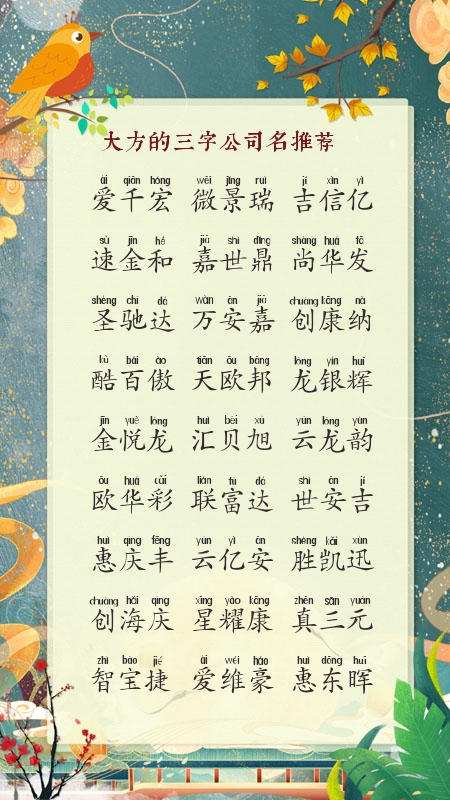 大方的三字公司名推荐
ài qiān hóng wēi jǐng ruì jí xìn yì
爱千宏 微景瑞 吉信亿
sù jīn hé jiā shì dǐng shàng huá fā
速金和 嘉世鼎 尚华发
shèng chí dá wàn ān jiā chuàng kāng nà
圣驰达 万安嘉 创康纳
kù bǎi ào tiān ōu bāng lóng yín huī
酷百傲 天欧邦 龙银辉
jīn yuè lóng huì bèi xù yún lóng yùn
金悦龙 汇贝旭 云龙韵
ōu huá cǎi lián fù dá shì ān jí
欧华彩 联富达 世安吉
huì qìng fēng yún yì ān shèng kǎi xùn
惠庆丰 云亿安 胜凯迅
chuàng hǎi qìng xīng yào kāng zhēn sān yuán
创海庆 星耀康 真三元
zhì bǎo jié ài wéi háo huì dōng huī
智宝捷 爱维豪 惠东晖